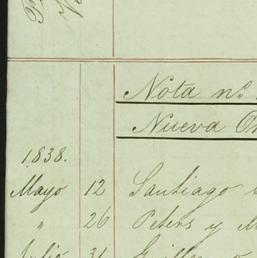 Nota nº
Nueva Or
1838.
Mayo 12 Santiago
" 26 Peters y M
Julio 31